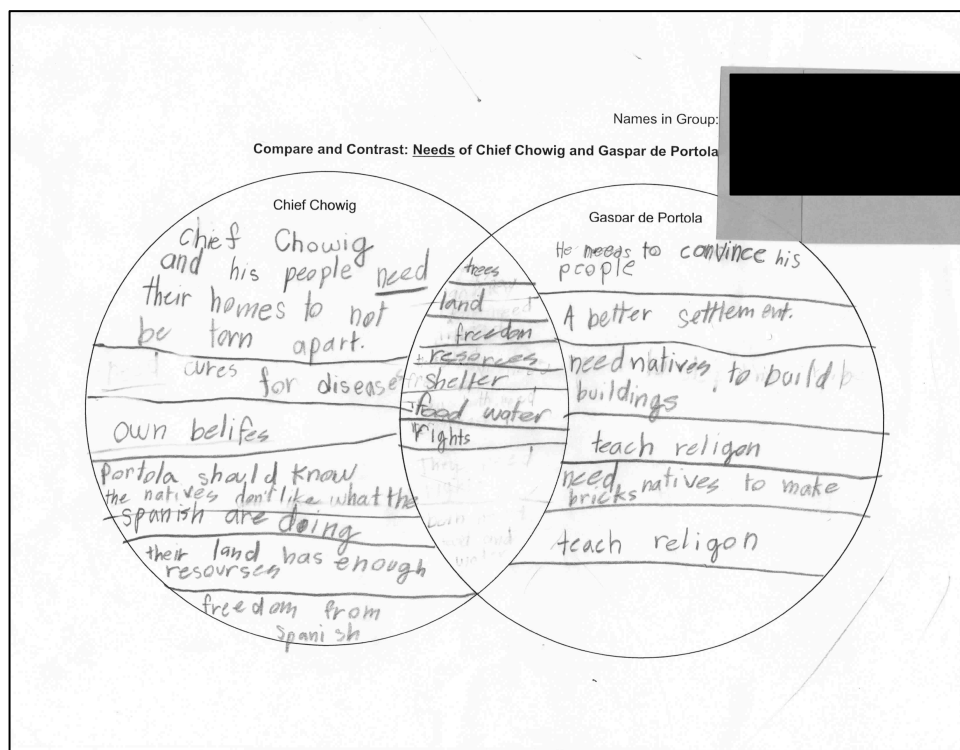 Names in Group:
Compare and Contrast: Needs of Chief Chowig and Gaspar de Portola
Chief Chowig
chief Chowig
and his people need
their homes to not
be torn apart.
cures for disease
own belifes
Portola should know
the natives don't like what the
spanish are doing
their land has enough
resourses
freedom from
spanish
trees
land
freedom
resorces
shelter
food water
rights
Gaspar de Portola
He needs to convince his
people
A better settlement.
need natives to build
buildings
teach religon
need natives to make
bricks
teach religon